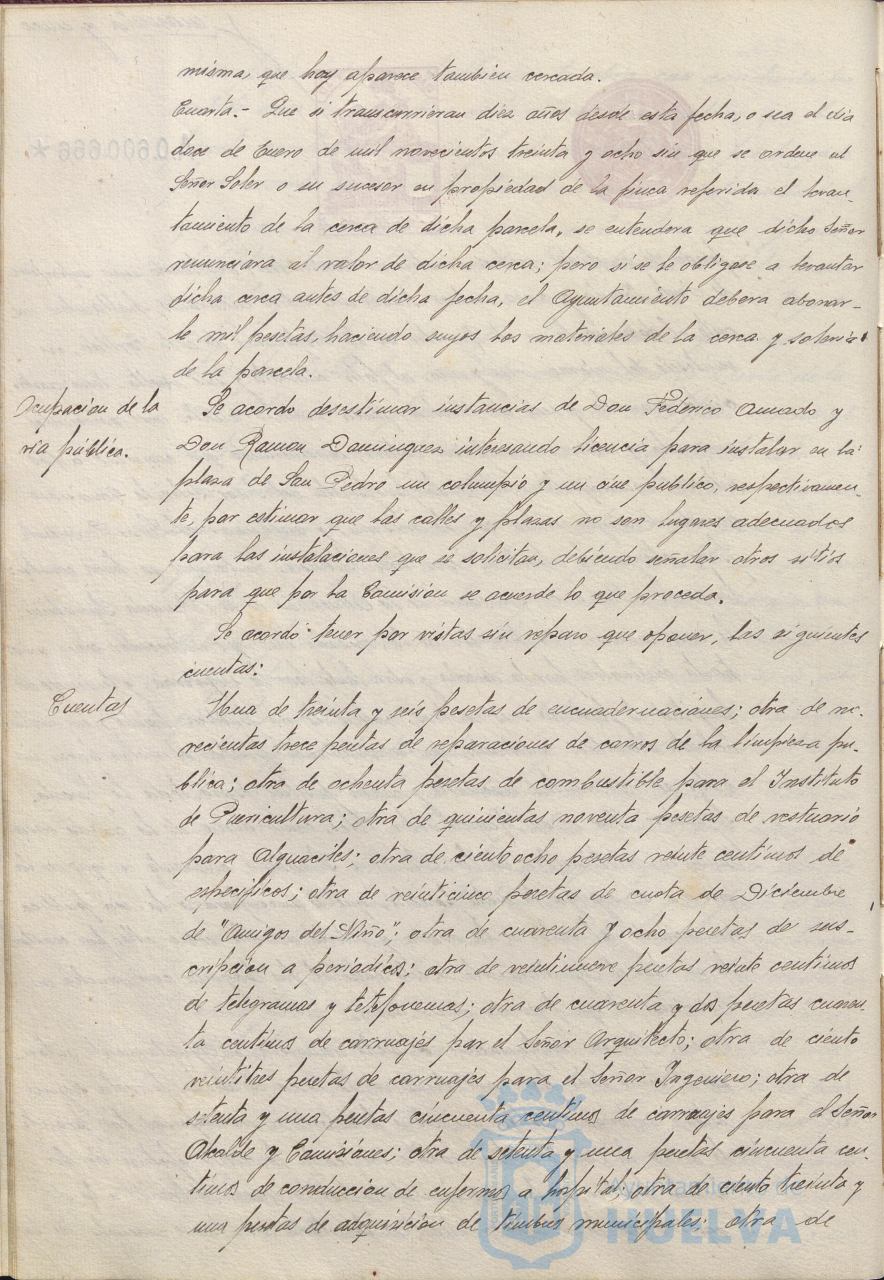 misma, que hoy aparece tambien cercada.
Cuarta.- Que si transcurrieran diez años desde esta fecha, o sea el dia
doce de Enero de mil novecientos treinta y ocho sin que se ordene al
Señor Soler o su sucesor en propiedad de la finca referida el levan-
tamiento de la cerca de dicha parcela, se entendera que dicho Señor
renunciara al valor de dicha cerca; pero si se le obligase a levantar
dicha cerca antes de dicha fecha, el Ayuntamiento debera abonar-
le mil pesetas, haciendo suyos los materiales de la cerca y soleria
de la parcela.
Ocupacion de la
via pública.
Se acordo desestimar instancias de Don Federico Amado y
Don Ramon Dominguez interesando licencia para instalar en la
plaza de San Pedro un columpio y un cine publico, respectivamen-
te, por estimar que las calles y plazas no son lugares adecuados
para las instalaciones que se solicitan, debiendo señalar otros sitios
para que por la Comision se acuerde lo que proceda.
Se acordó tener por vistas sin reparo que oponer, las siguientes
cuentas:
Cuentas
Una de treinta y seis pesetas de encuadernaciones; otra de no-
vecientas trece pesetas de reparaciones de carros de la limpieza pu-
blica; otra de ochenta pesetas de combustible para el Instituto
de Puericultura; otra de quinientas noventa pesetas de vestuario
para Alguaciles; otra de ciento ocho pesetas veinte centimos de
especificos; otra de veinticinco pesetas de cuota de Diciembre
de "Amigos del Niño"; otra de cuarenta y ocho pesetas de sus-
cripcion a periodicos; otra de veintinueve pesetas veinte centimos
de telegramas y telefonemas; otra de cuarenta y dos pesetas cuaren-
ta centimos de carruajes par el Señor Arquitecto; otra de ciento
veintitres pesetas de carruajes para el Señor Ingeniero; otra de
setenta y una pesetas cincuenta centimos de carruajes para el Señor
Alcalde y Comisiones; otra de setenta y una pesetas cincuenta cen-
timos de conduccion de enfermos a hospital; otra de ciento treinta y
una pesetas de adquisicion de timbres municipales; otra de
Ayuntamiento de
HUELVA